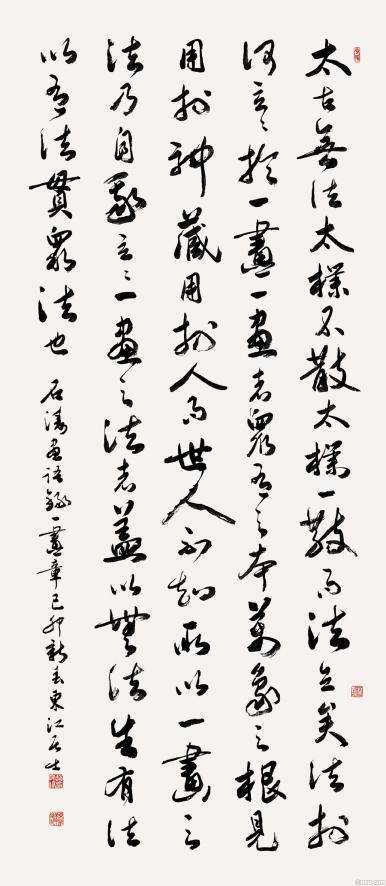 太古無法太樸不散太樸一散而法立矣法於
何立々於一畫一畫者眾有之本萬象之根見
用於神藏用於人而世人不知所以一畫之
法乃自我立々一畫之法者蓋以無法生有法
以有法貫眾法也
石濤畫語錄一畫章己卯新春東江居士